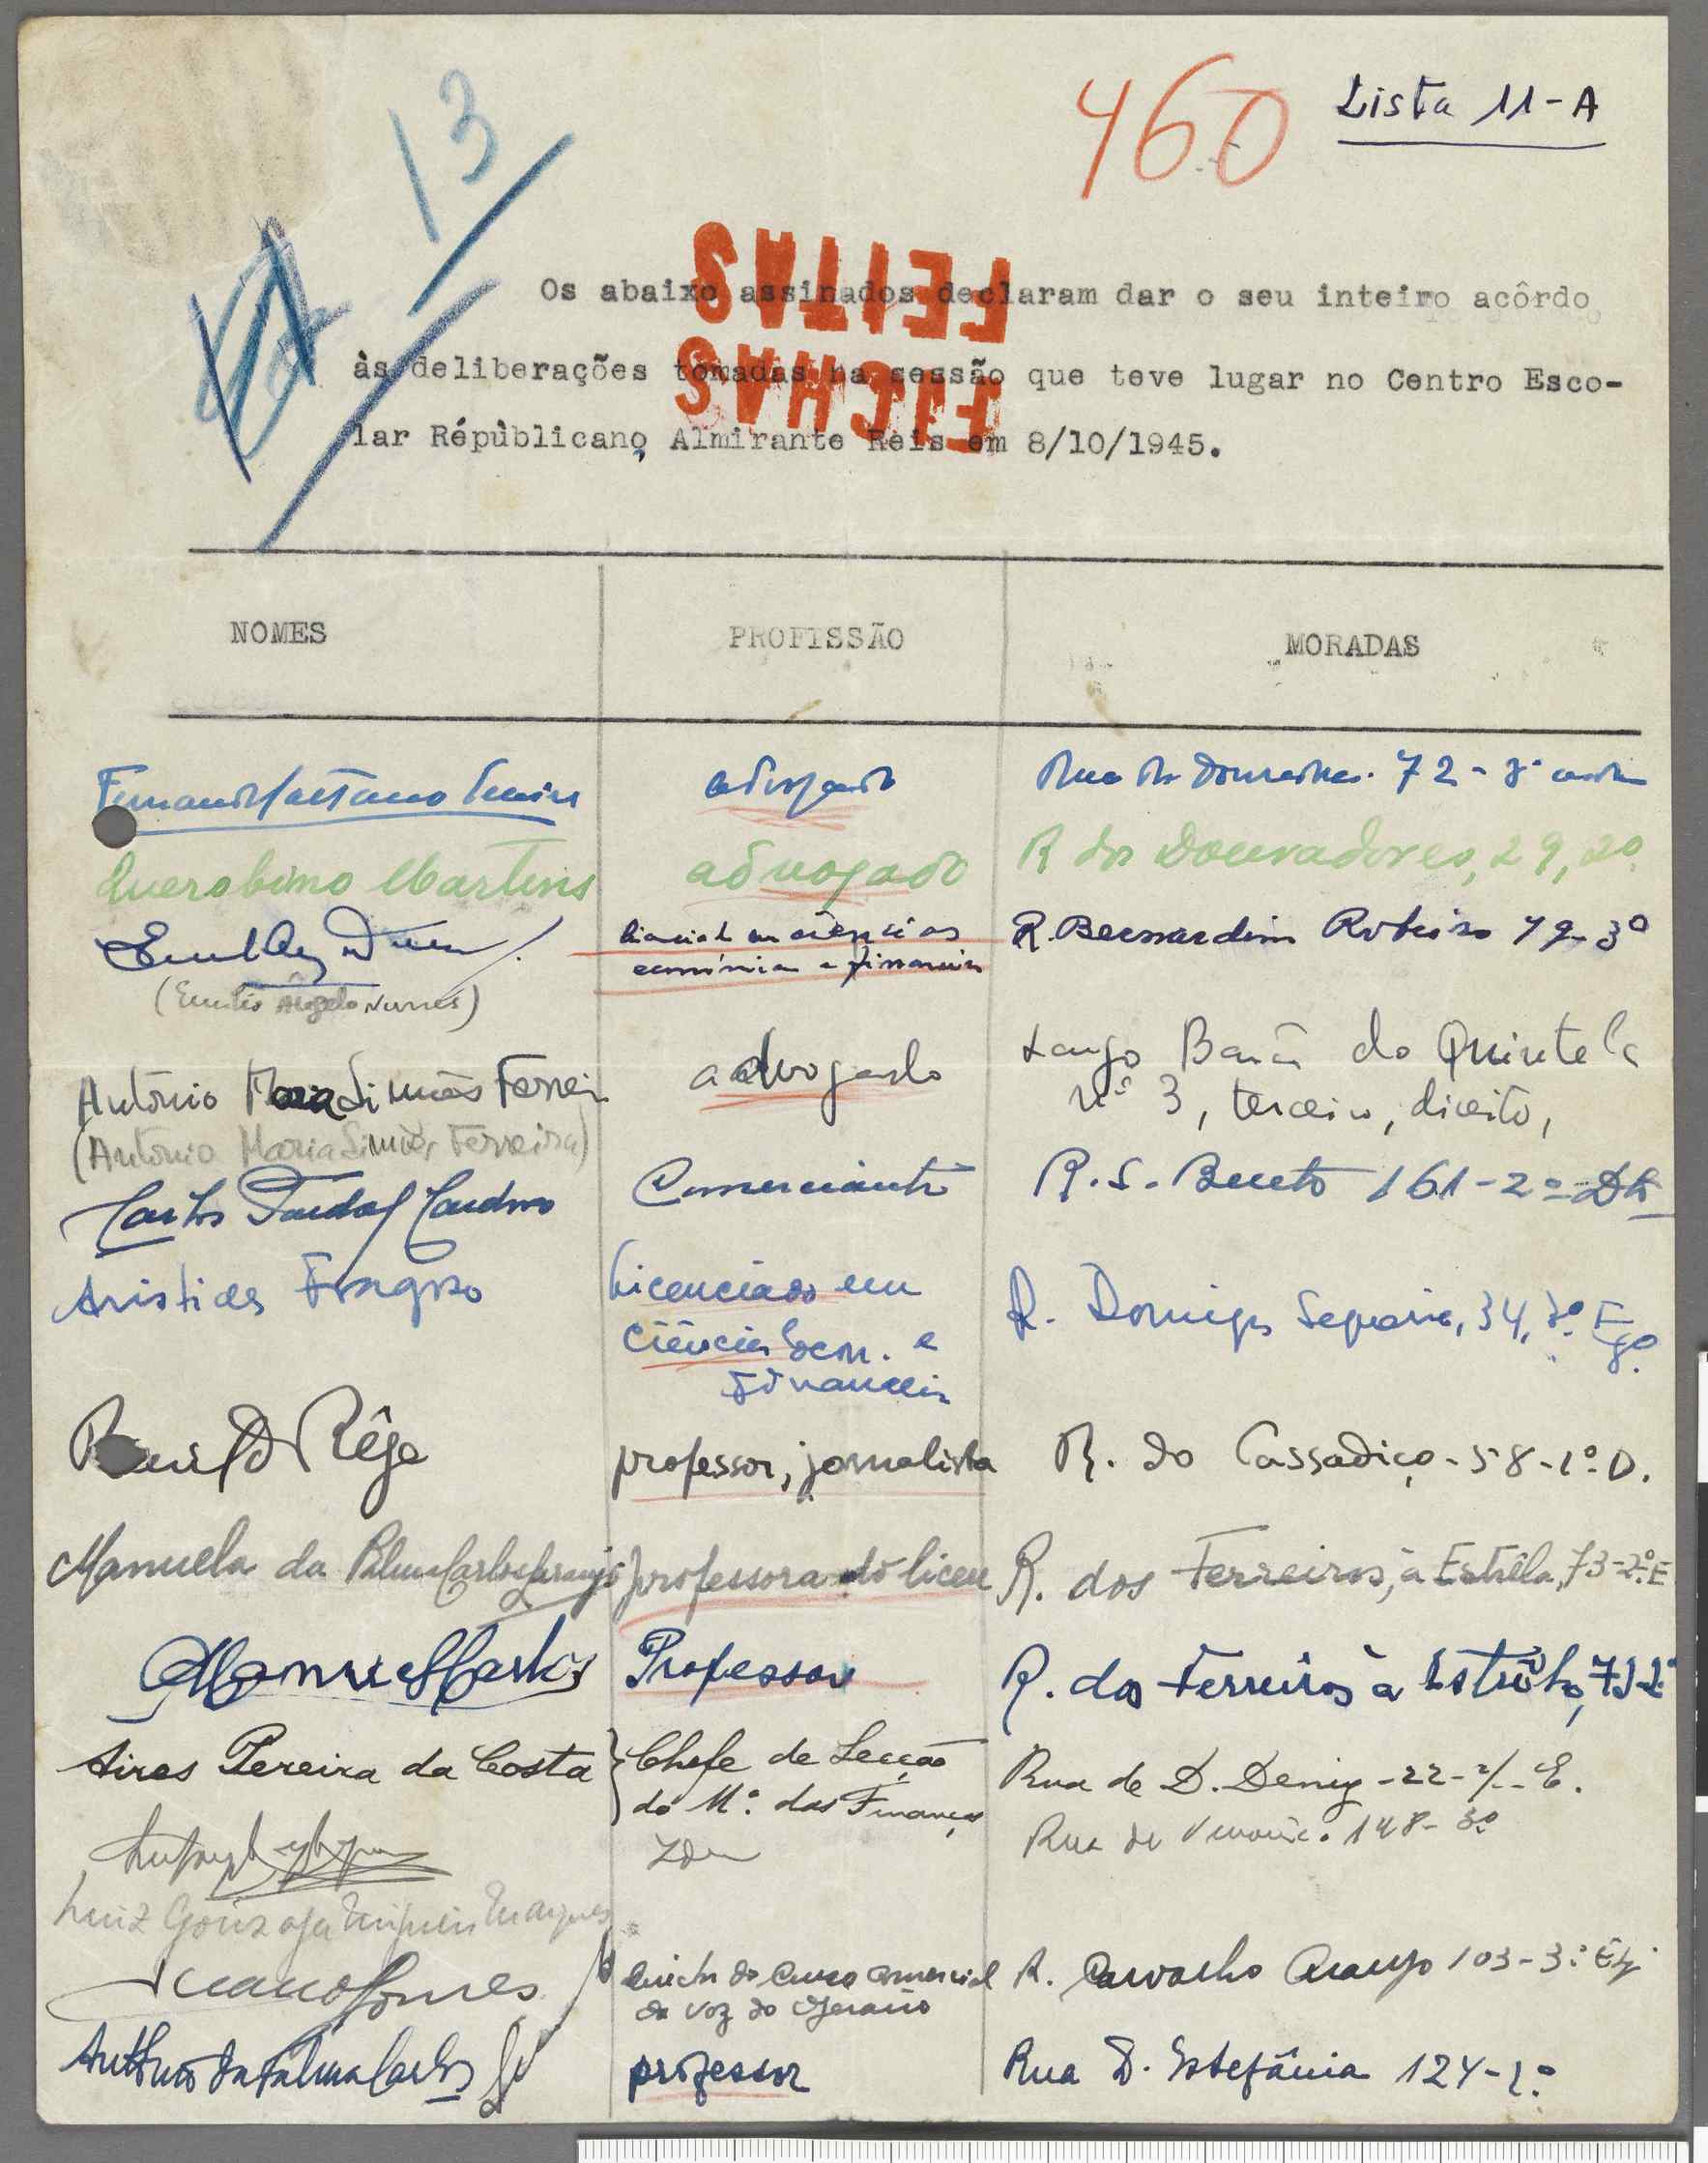 13
460
Lista 11-A
FICHAS
FEITAS
Os abaixo assinados declaram dar o seu inteiro acôrdo
às deliberações tomadas na sessão que teve lugar no Centro Esco-
lar Républicano, Almirante Reis em 8/10/1945.
NOMES PROFISSÃO MORADAS
Caetano advogado 72-3º
Querobimo Martins advogado R dos Douradores, 29, 2º
em ciências R. Bernardim Ribeiro 79-3º
(Emilio Ângelo Nunes) e
António Maria Simões Ferreira advogado Largo Barão do Quintela
nº 3, terceiro, direito,
(António Maria Simões Ferreira)
Carlos Cardoso Comerciante R. S. Bento 161-2º Dto
Aristides Fragoso Licenciado em R. Domingos Sequeira, 34, 3º Esqº
Ciências Econ. e
Rêgo professor, jornalista R. do Cassadiço-58-1º-D.
Manuela da Palma Carlos professora do liceu R. dos Ferreiros, à Estrêla, 73-2º-E
Professor R. dos Ferreiros à Estrêla, 73-2º
Aires Pereira da Costa Chefe de Secção Rua de D. Deniz-22- -E.
do Mº. das Finanças
Idem Rua de 148-3º
Luiz Gonzaga Marques
do Curso Comercial R. Carvalho Araujo 103-3º Esq.
da Voz do Operário
António da Palma Carlos professor Rua D. Estefânia 124-1º